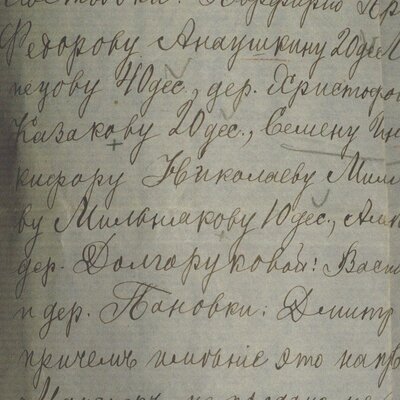 Порфирію
Федорову Анаушкину 20 дес.
пецову 40 дес., дер. Христофо
Казакову 20 дес., Семену Ин
кифору Николаеву Мил
ву Мильшакову 10 дес., Але
дер. Долгоруковой: Васи
и дер. Пановки: Дмитр
причемъ имѣніе это напр